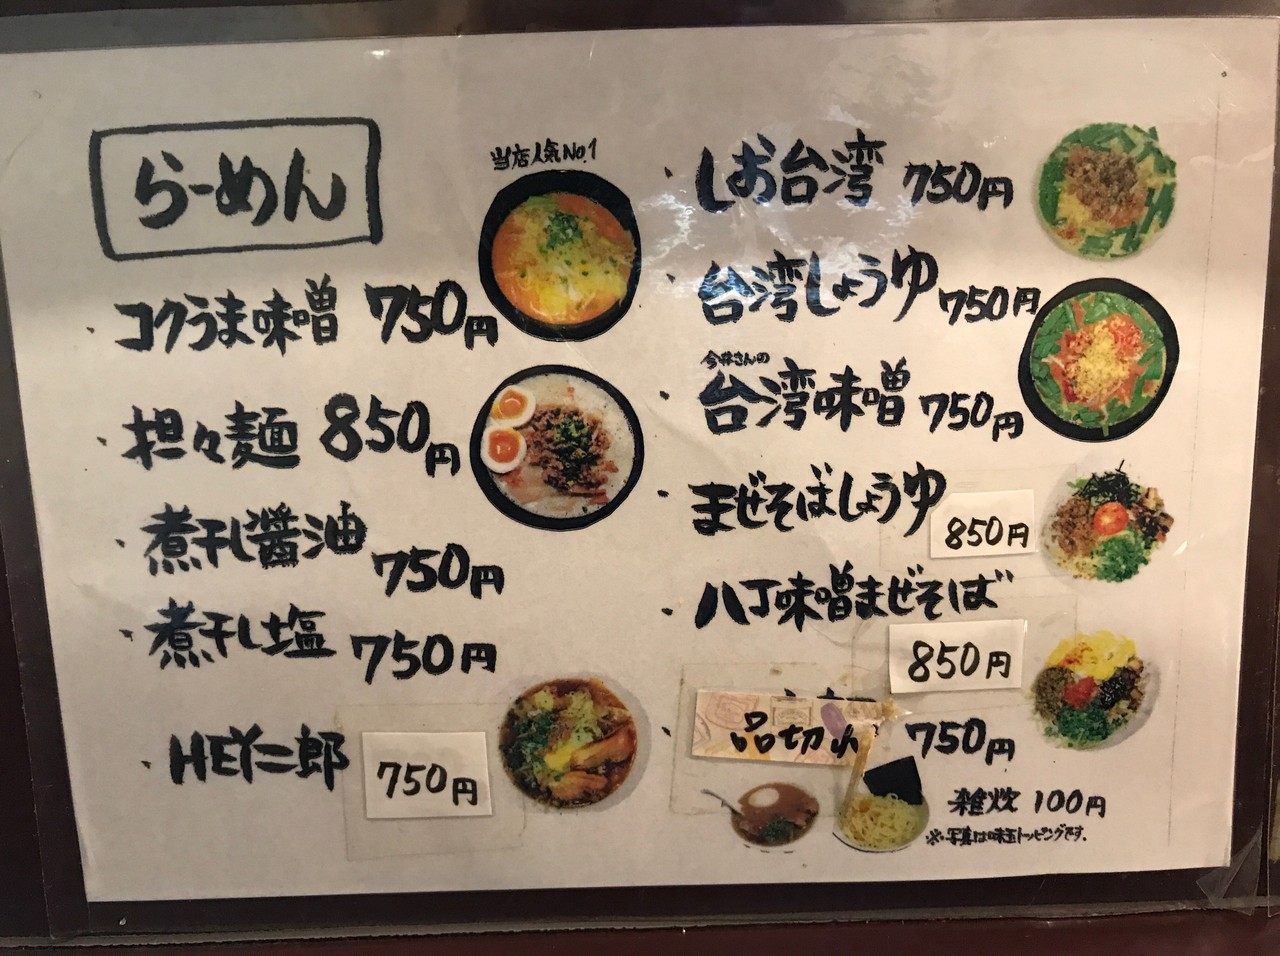 らーめん
当店人気No.1
コクうま味噌 750円
担々麺 850円
煮干し醤油 750円
煮干し塩 750円
HEY二郎 750円
しお台湾 750円
台湾しょうゆ 750円
今井さんの
台湾味噌 750円
まぜそばしょうゆ 850円
八丁味噌まぜそば
850円
品切れ 750円
雑炊 100円
※写真は味玉トッピングです。